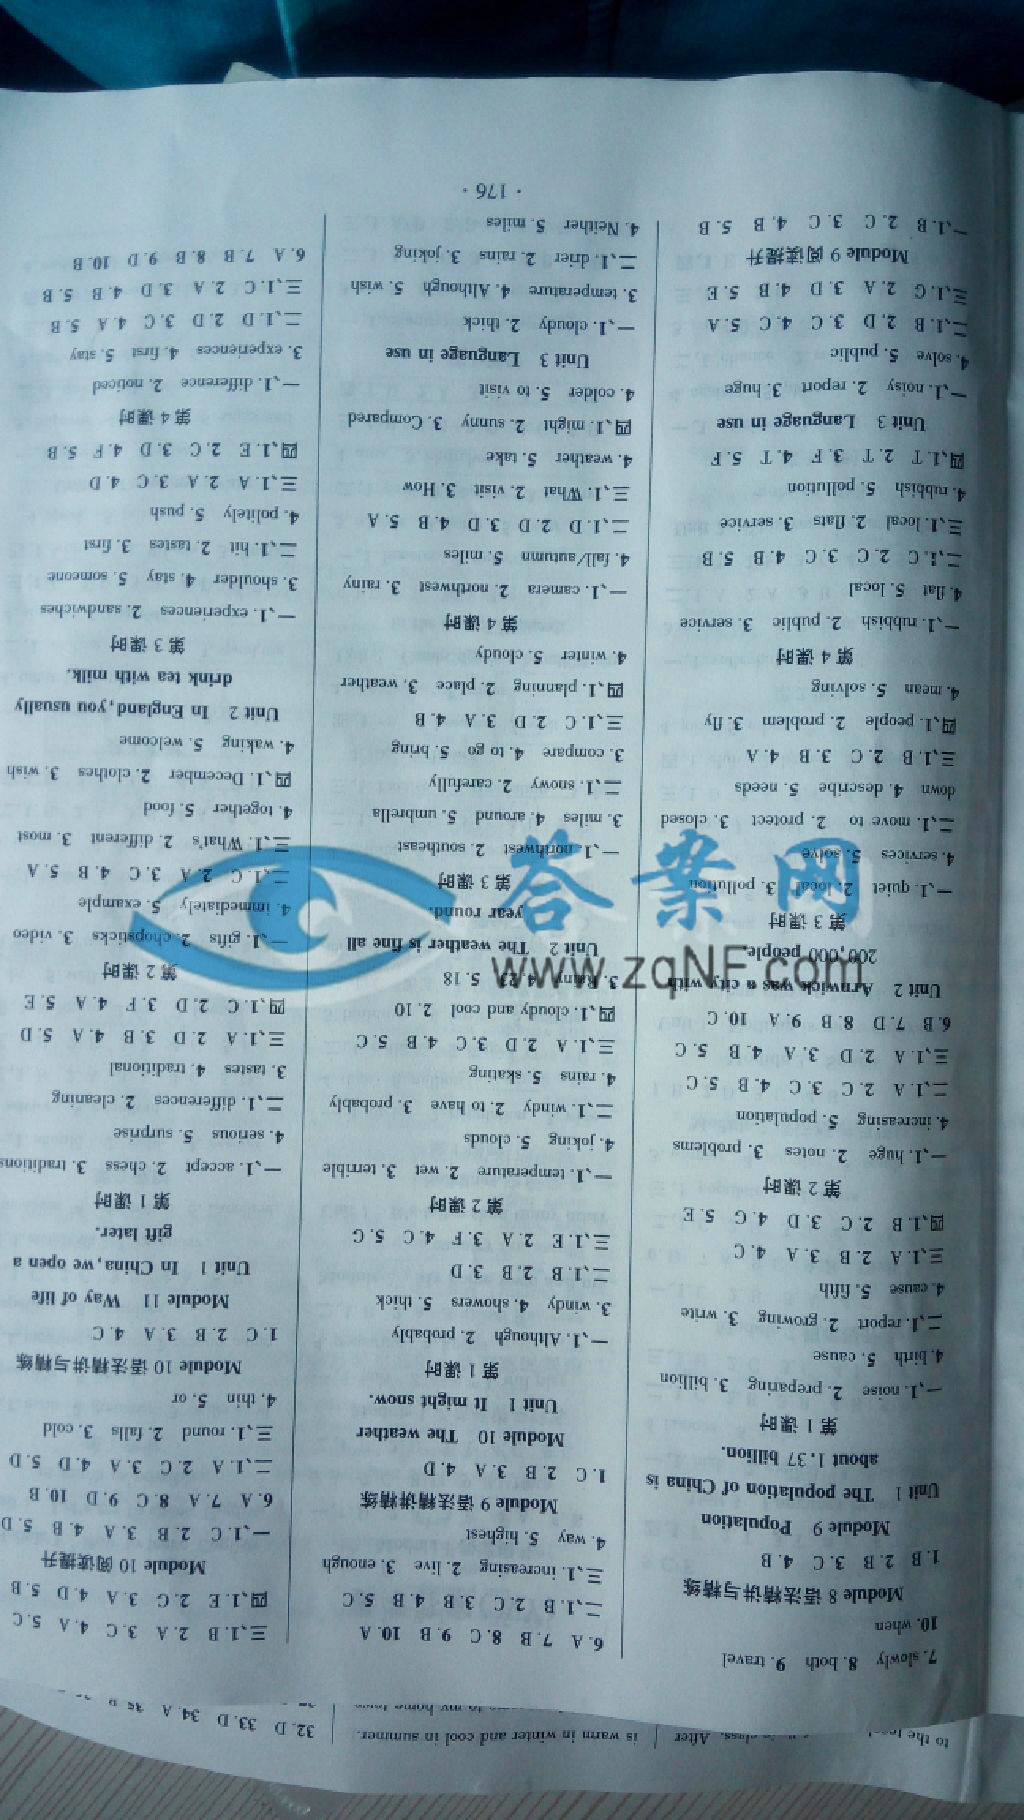 7. slowly 8. both 9. travel
10. when
Module 8 语法精讲与精练
1. B 2. B 3. C 4. B
Module 9 Population
Unit 1 The population of China is
about 1.37 billion.
第 1 课时
一、1. noise 2. preparing 3. billion
4. birth 5. cause
二、1. report 2. growing 3. write
4. cause 5. fifth
三、1. A 2. B 3. A 4. C
四、1. B 2. C 3. D 4. G 5. E
第 2 课时
一、1. huge 2. notes 3. problems
4. increasing 5. population
二、1. A 2. C 3. C 4. B 5. C
三、1. A 2. D 3. A 4. B 5. C
6. B 7. D 8. B 9. A 10. C
Unit 2 Arnwick was a city with
200,000 people.
第 3 课时
一、1. quiet 2. local 3. pollution
4. services 5. solve
二、1. move to 2. protect 3. closed
down 4. describe 5. needs
三、1. B 2. C 3. B 4. A
四、1. people 2. problem 3. fly
4. mean 5. solving
第 4 课时
一、1. rubbish 2. public 3. service
4. flat 5. local
二、1. C 2. C 3. C 4. B 5. B
三、1. local 2. flats 3. service
4. rubbish 5. pollution
四、1. T 2. T 3. F 4. T 5. F
Unit 3 Language in use
一、1. noisy 2. report 3. huge
4. solve 5. public
二、1. B 2. D 3. C 4. C 5. A
三、1. G 2. A 3. D 4. B 5. E
Module 9 阅读提升
一、1. B 2. C 3. C 4. B 5. B
6. A 7. B 8. C 9. B 10. A
二、1. B 2. C 3. B 4. B 5. C
三、1. increasing 2. live 3. enough
4. way 5. highest
Module 9 语法精讲精练
1. C 2. B 3. A 4. D
Module 10 The weather
Unit 1 It might snow.
第 1 课时
一、1. Although 2. probably
3. windy 4. showers 5. thick
二、1. B 2. B 3. D
三、1. E 2. A 3. F 4. C 5. G
第 2 课时
一、1. temperature 2. wet 3. terrible
4. joking 5. clouds
二、1. windy 2. to have 3. probably
4. rains 5. skating
三、1. A 2. D 3. C 4. B 5. C
四、1. cloudy and cool 2. 10
3. Rainy 4. 23 5. 18
Unit 2 The weather is fine all
year round.
第 3 课时
一、1. northwest 2. southeast
3. miles 4. around 5. umbrella
二、1. snowy 2. carefully
3. compare 4. to go 5. bring
三、1. C 2. D 3. A 4. B
四、1. planning 2. place 3. weather
4. winter 5. cloudy
第 4 课时
一、1. camera 2. northwest 3. rainy
4. fall/autumn 5. miles
二、1. D 2. D 3. D 4. B 5. A
三、1. What 2. visit 3. How
4. weather 5. take
四、1. might 2. sunny 3. Compared
4. colder 5. to visit
Unit 3 Language in use
一、1. cloudy 2. thick
3. temperature 4. Although 5. wish
二、1. drier 2. rains 3. joking
4. Neither 5. miles
三、1. B 2. A 3. C 4. A 5. C
四、1. E 2. G 3. A 4. D 5. B
Module 10 阅读提升
一、1. C 2. B 3. A 4. B 5. D
6. A 7. A 8. C 9. D 10. B
二、1. A 2. C 3. A 4. D 5. D
三、1. round 2. falls 3. cold
4. thin 5. or
Module 10 语法精讲与精练
1. C 2. B 3. A 4. C
Module 11 Way of life
Unit 1 In China, we open a
gift later.
第 1 课时
一、1. accept 2. chess 3. traditions
4. serious 5. surprise
二、1. differences 2. cleaning
3. tastes 4. traditional
三、1. A 2. D 3. B 4. A 5. D
四、1. C 2. D 3. F 4. A 5. E
第 2 课时
一、1. gifts 2. chopsticks 3. video
4. immediately 5. example
二、1. C 2. A 3. C 4. B 5. A
三、1. What's 2. different 3. most
4. together 5. food
四、1. December 2. clothes 3. wish
4. waking 5. welcome
Unit 2 In England, you usually
drink tea with milk.
第 3 课时
一、1. experiences 2. sandwiches
3. shoulder 4. stay 5. someone
二、1. hit 2. tastes 3. first
4. politely 5. push
三、1. A 2. A 3. C 4. D
四、1. E 2. C 3. D 4. F 5. B
第 4 课时
一、1. difference 2. noticed
3. experiences 4. first 5. stay
二、1. D 2. D 3. C 4. A 5. B
三、1. C 2. A 3. D 4. B 5. B
6. A 7. B 8. B 9. D 10. B
· 176 ·
答案网
www.zqNF.com
to the
class. After
is warm in winter and cool in summer.
to my home
32. D 33. D 34. A 35.